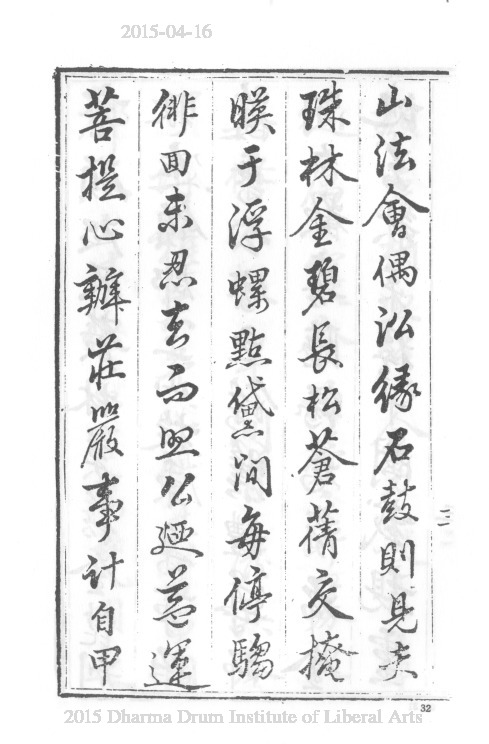 2015-04-16
山法會偶泓緣石鼓則見夫
珠林金碧長松蒼蒨交掩
暎于浮螺點黛間每停驂
徘回未忍去而與公廼益運
菩提心辦莊嚴事計自甲
三
32
2015 Dharma Drum Institute of Liberal Arts